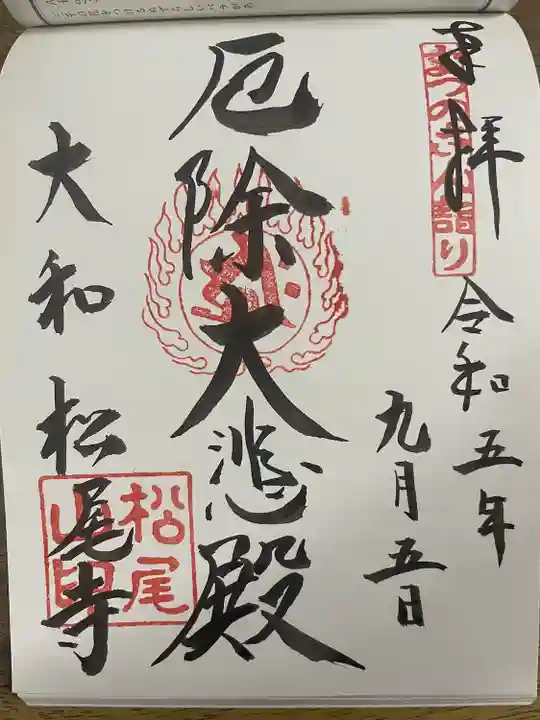 奉拝
まつのさん詣り
令和五年
九月五日
厄除大悲殿
大和松尾寺
松尾山印